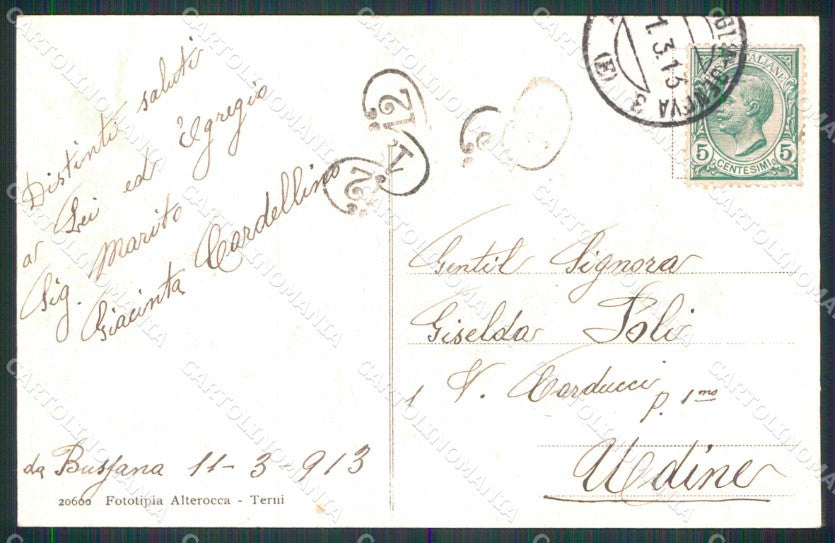 Distinti saluti
a Lei ed Egregio
Sig. Marito
Giacinta Cardellino
da Bussana 11-3-913
20660 Fototipia Alterocca - Terni
12
T
12
1.3.13
3
(E)
5 CENTESIMI 5
Gentil Signora
Giselda Poli
V. Carducci
p. 1mo
Udine
CARTOLINOMANIA